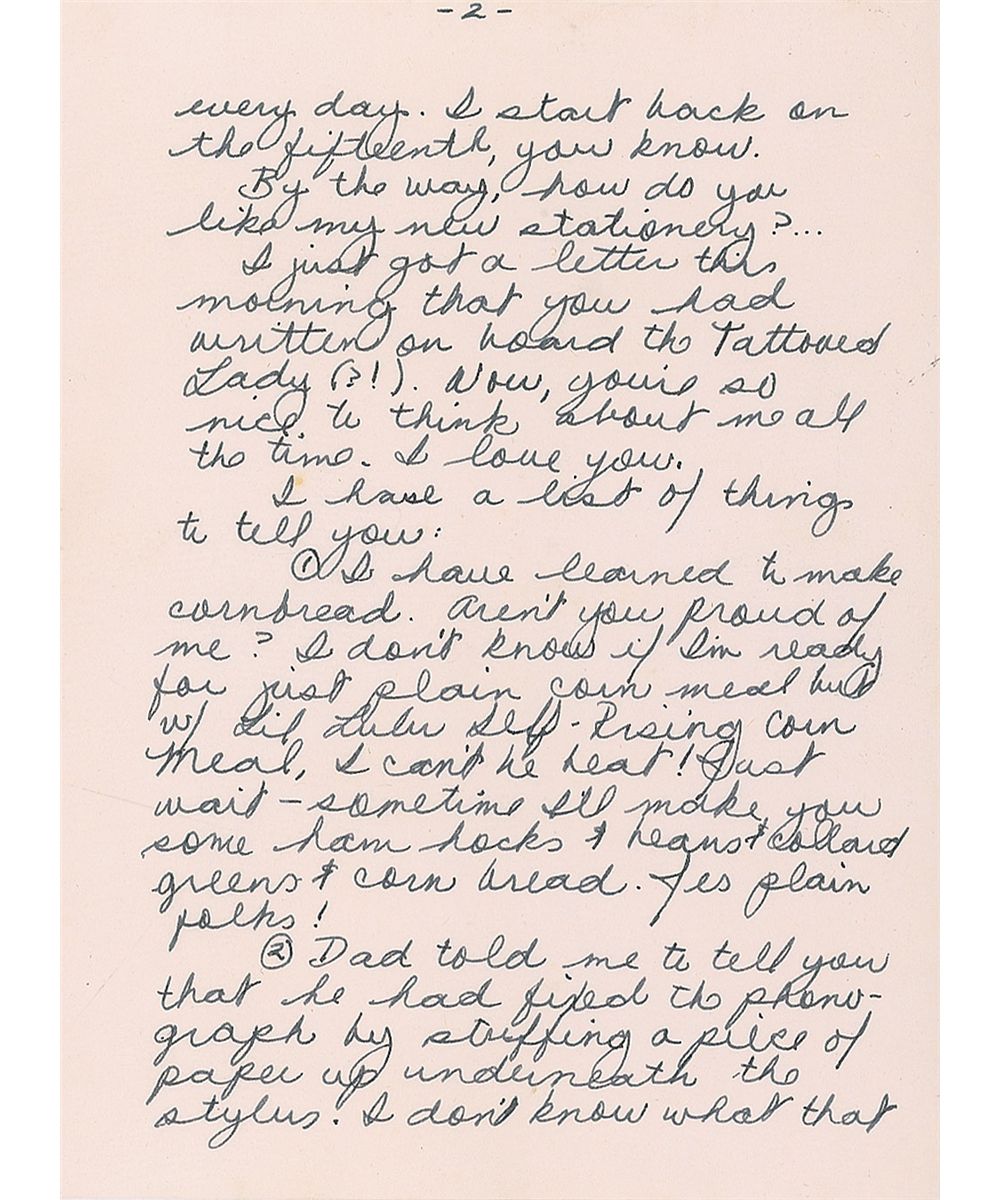 - 2 -
every day. I start back on
the fifteenth, you know.
By the way, how do you
like my new stationery?...
I just got a letter this
morning that you had
written on board the Tattooed
Lady (?!). Now, you're so
nice to think about me all
the time. I love you.
I have a list of things
to tell you:
① I have learned to make
cornbread. Aren't you proud of
me? I don't know if I'm ready
for just plain corn meal but
w/ Lil Lulu Self-Rising Corn
Meal, I can't be beat! Just
wait – sometime I'll make you
some ham hocks & beans & collard
greens & corn bread. Jes plain
folks!
② Dad told me to tell you
that he had fixed the phono-
graph by stuffing a piece of
paper up underneath the
stylus. I don't know what that